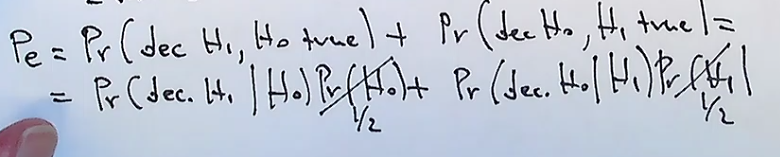 Pe = Pr(dec H₁, H₀ true) + Pr(dec H₀, H₁ true) =
= Pr(dec. H₁ | H₀) Pr(H₀) + Pr(dec. H₀ | H₁) Pr(H₁)
1/2 1/2